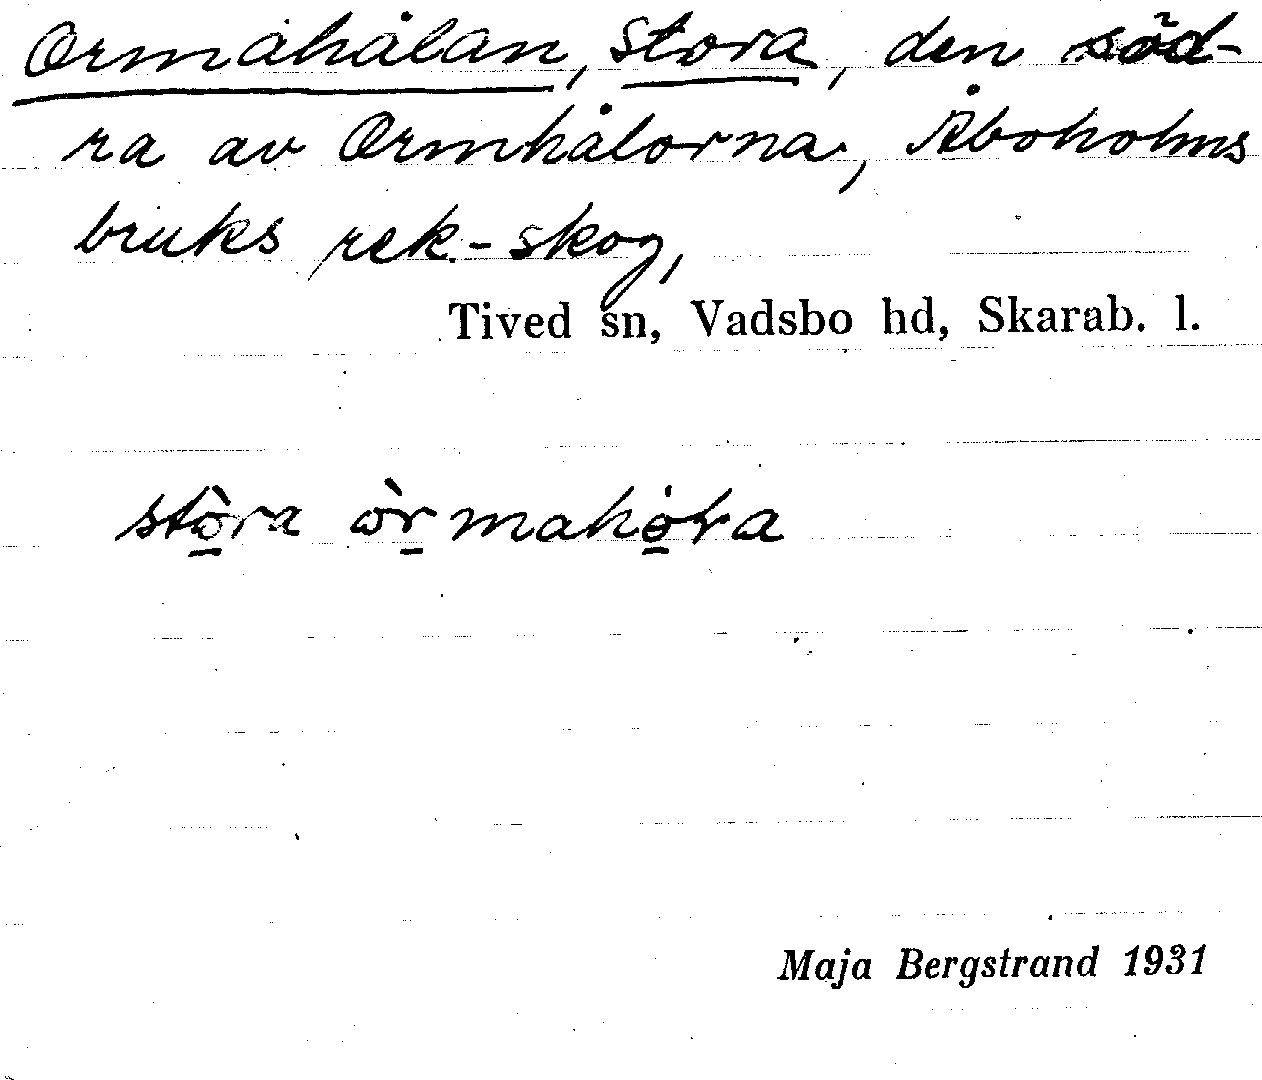 Ormahålan, stora, den söd-
ra av Ormhålorna, Åboholms
bruks rek-skog,
Tived sn, Vadsbo hd, Skarab. l.
stò̱ra òṟmahò̱ra
Maja Bergstrand 1931